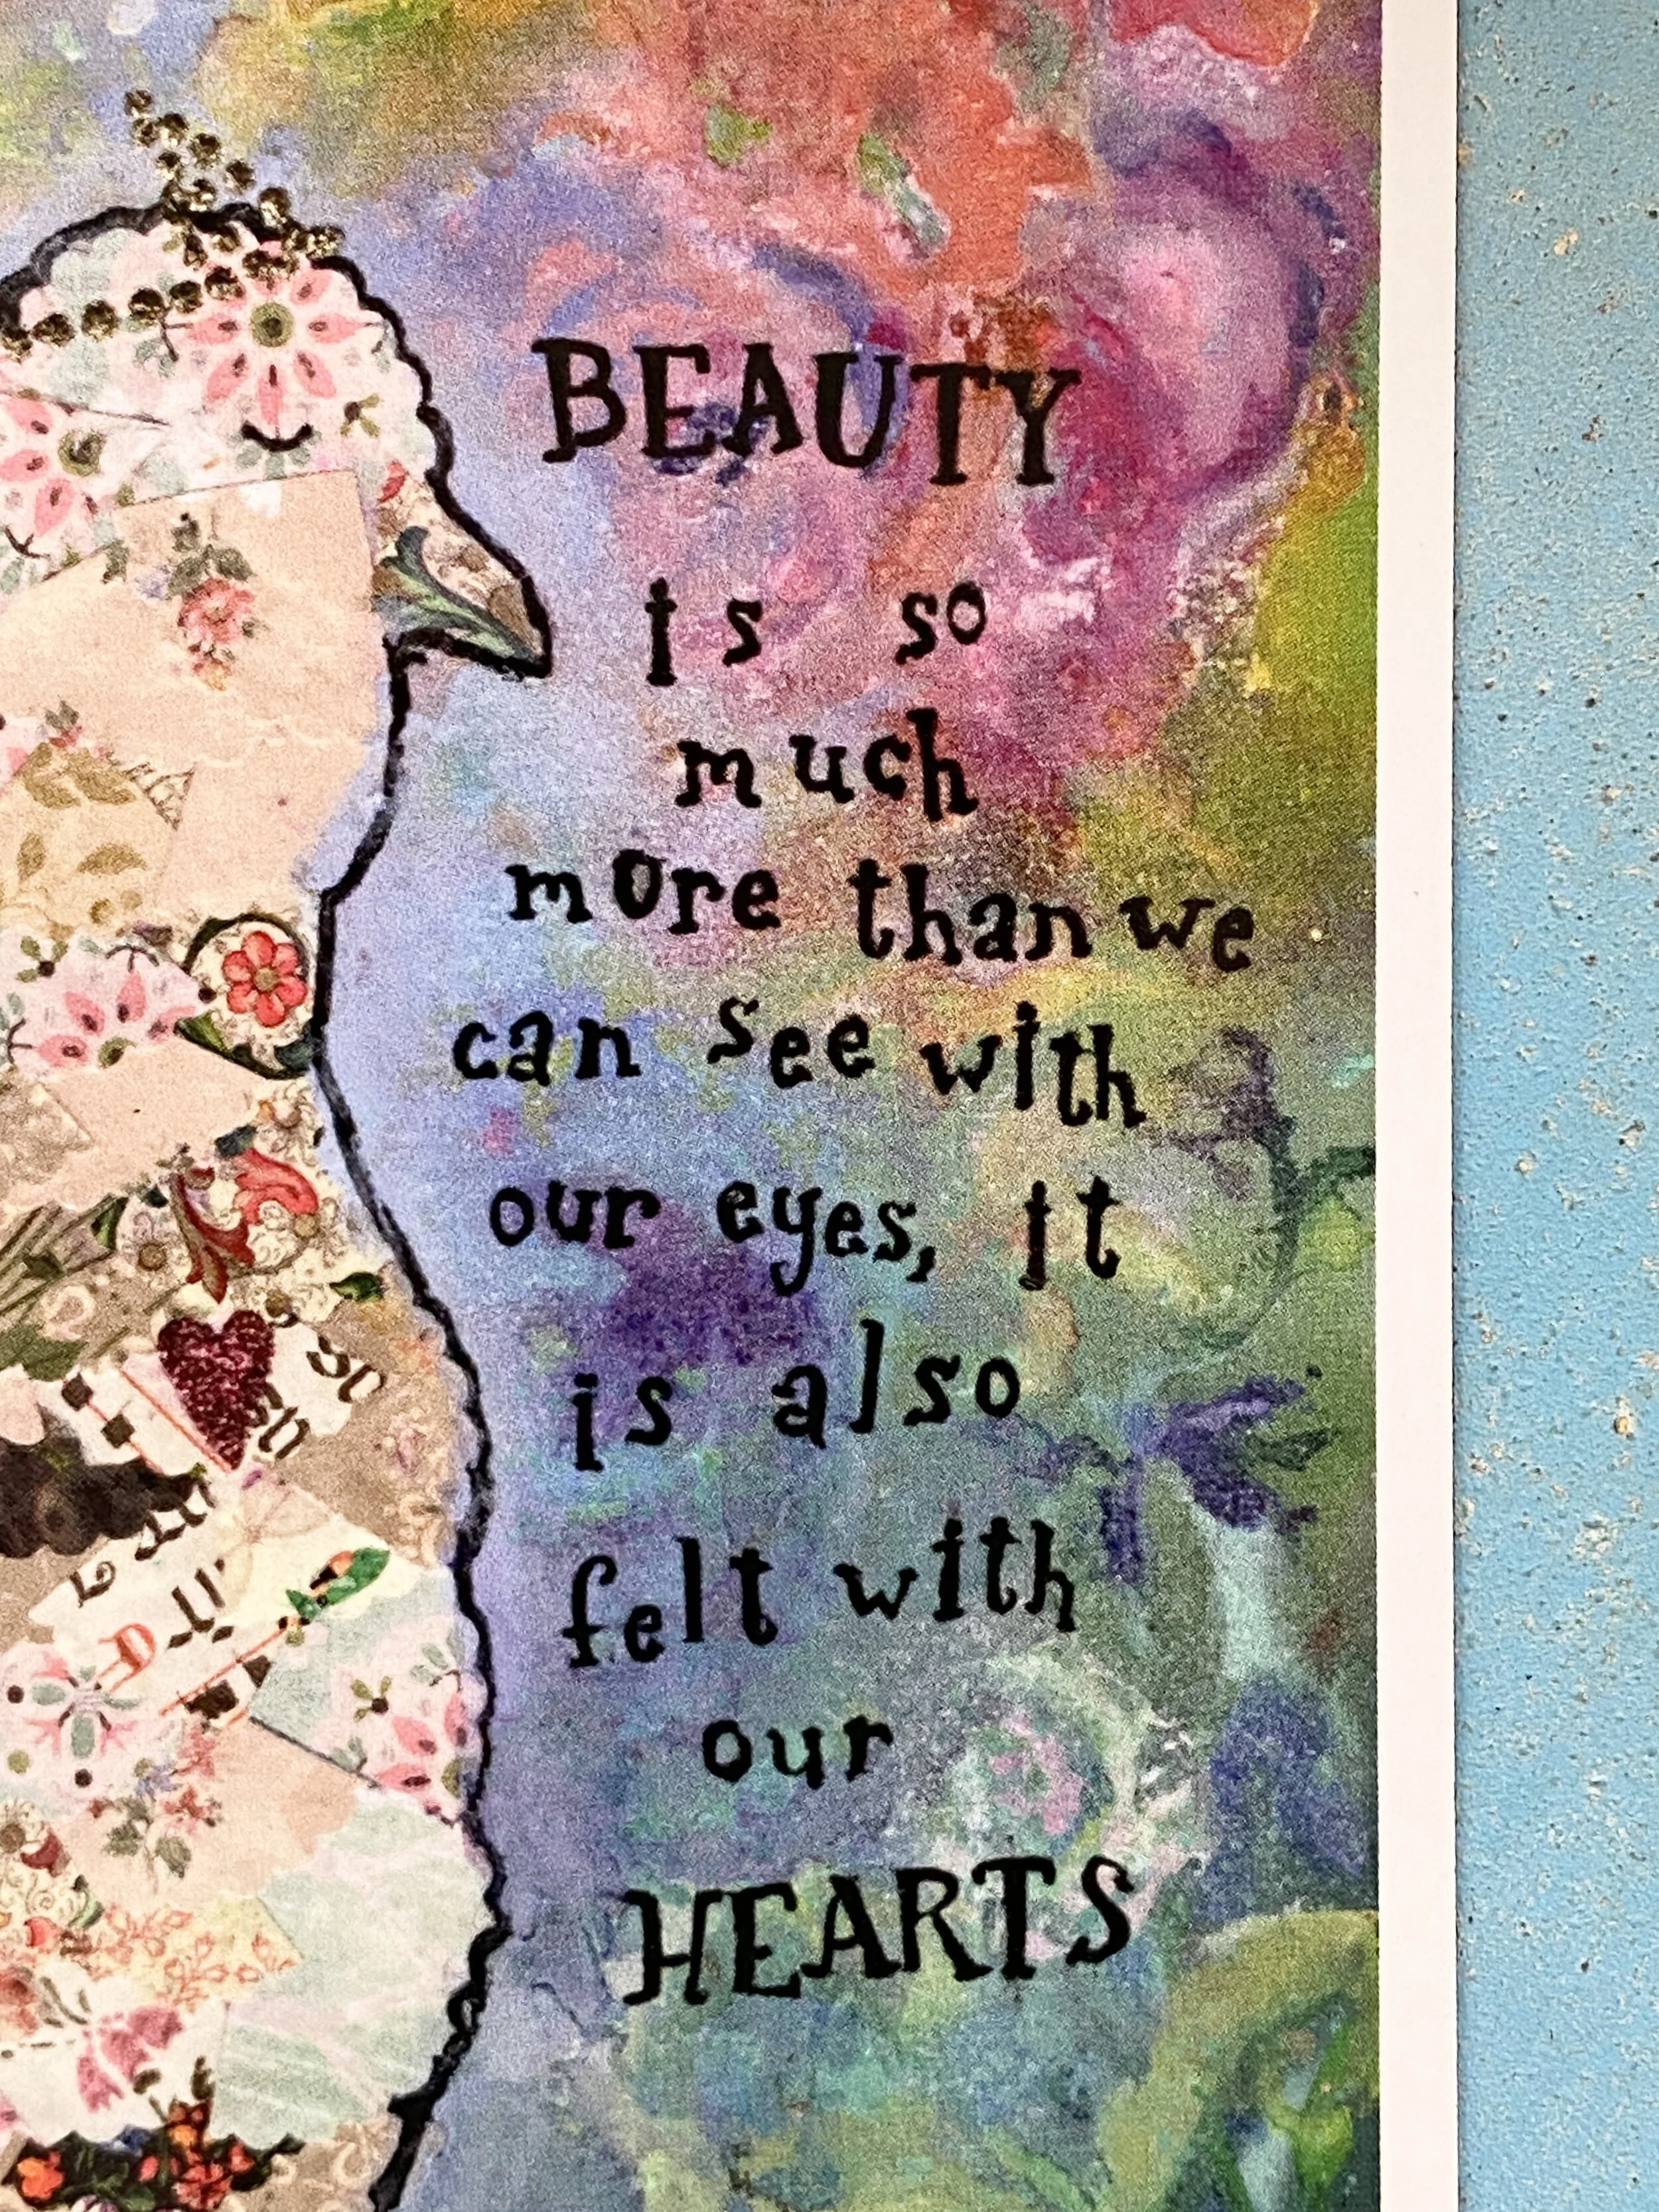 BEAUTY
is so
much
more than we
can see with
our eyes, it
is also
felt with
our
HEARTS